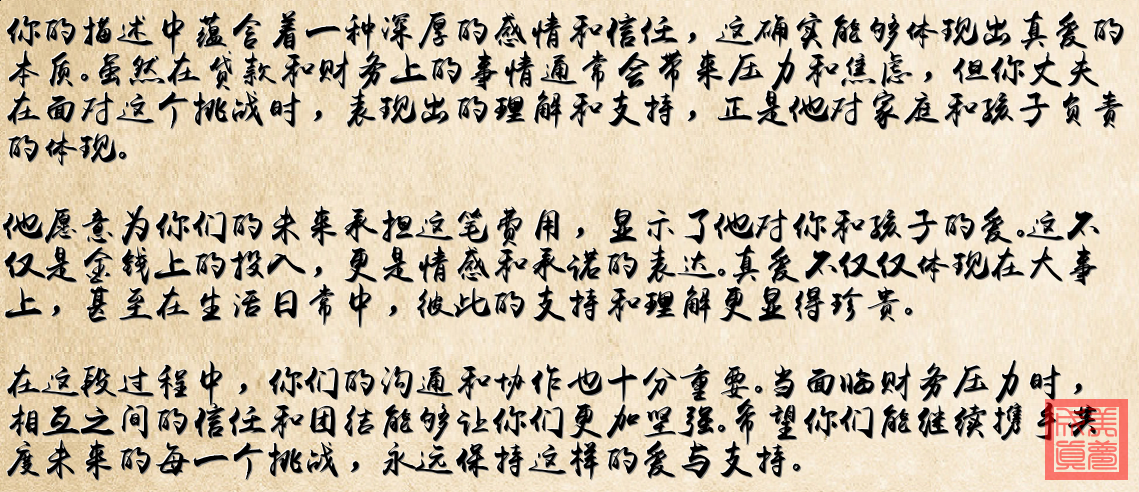 你的描述中蕴含着一种深厚的感情和信任，这确实能够体现出真爱的
本质。虽然在贷款和财务上的事情通常会带来压力和焦虑，但你丈夫
在面对这个挑战时，表现出的理解和支持，正是他对家庭和孩子负责
的体现。
他愿意为你们的未来承担这笔费用，显示了他对你和孩子的爱。这不
仅是金钱上的投入，更是情感和承诺的表达。真爱不仅仅体现在大事
上，甚至在生活日常中，彼此的支持和理解更显得珍贵。
在这段过程中，你们的沟通和协作也十分重要。当面临财务压力时，
相互之间的信任和团结能够让你们更加坚强。希望你们能继续携手共
度未来的每一个挑战，永远保持这样的爱与支持。
美梦
成真